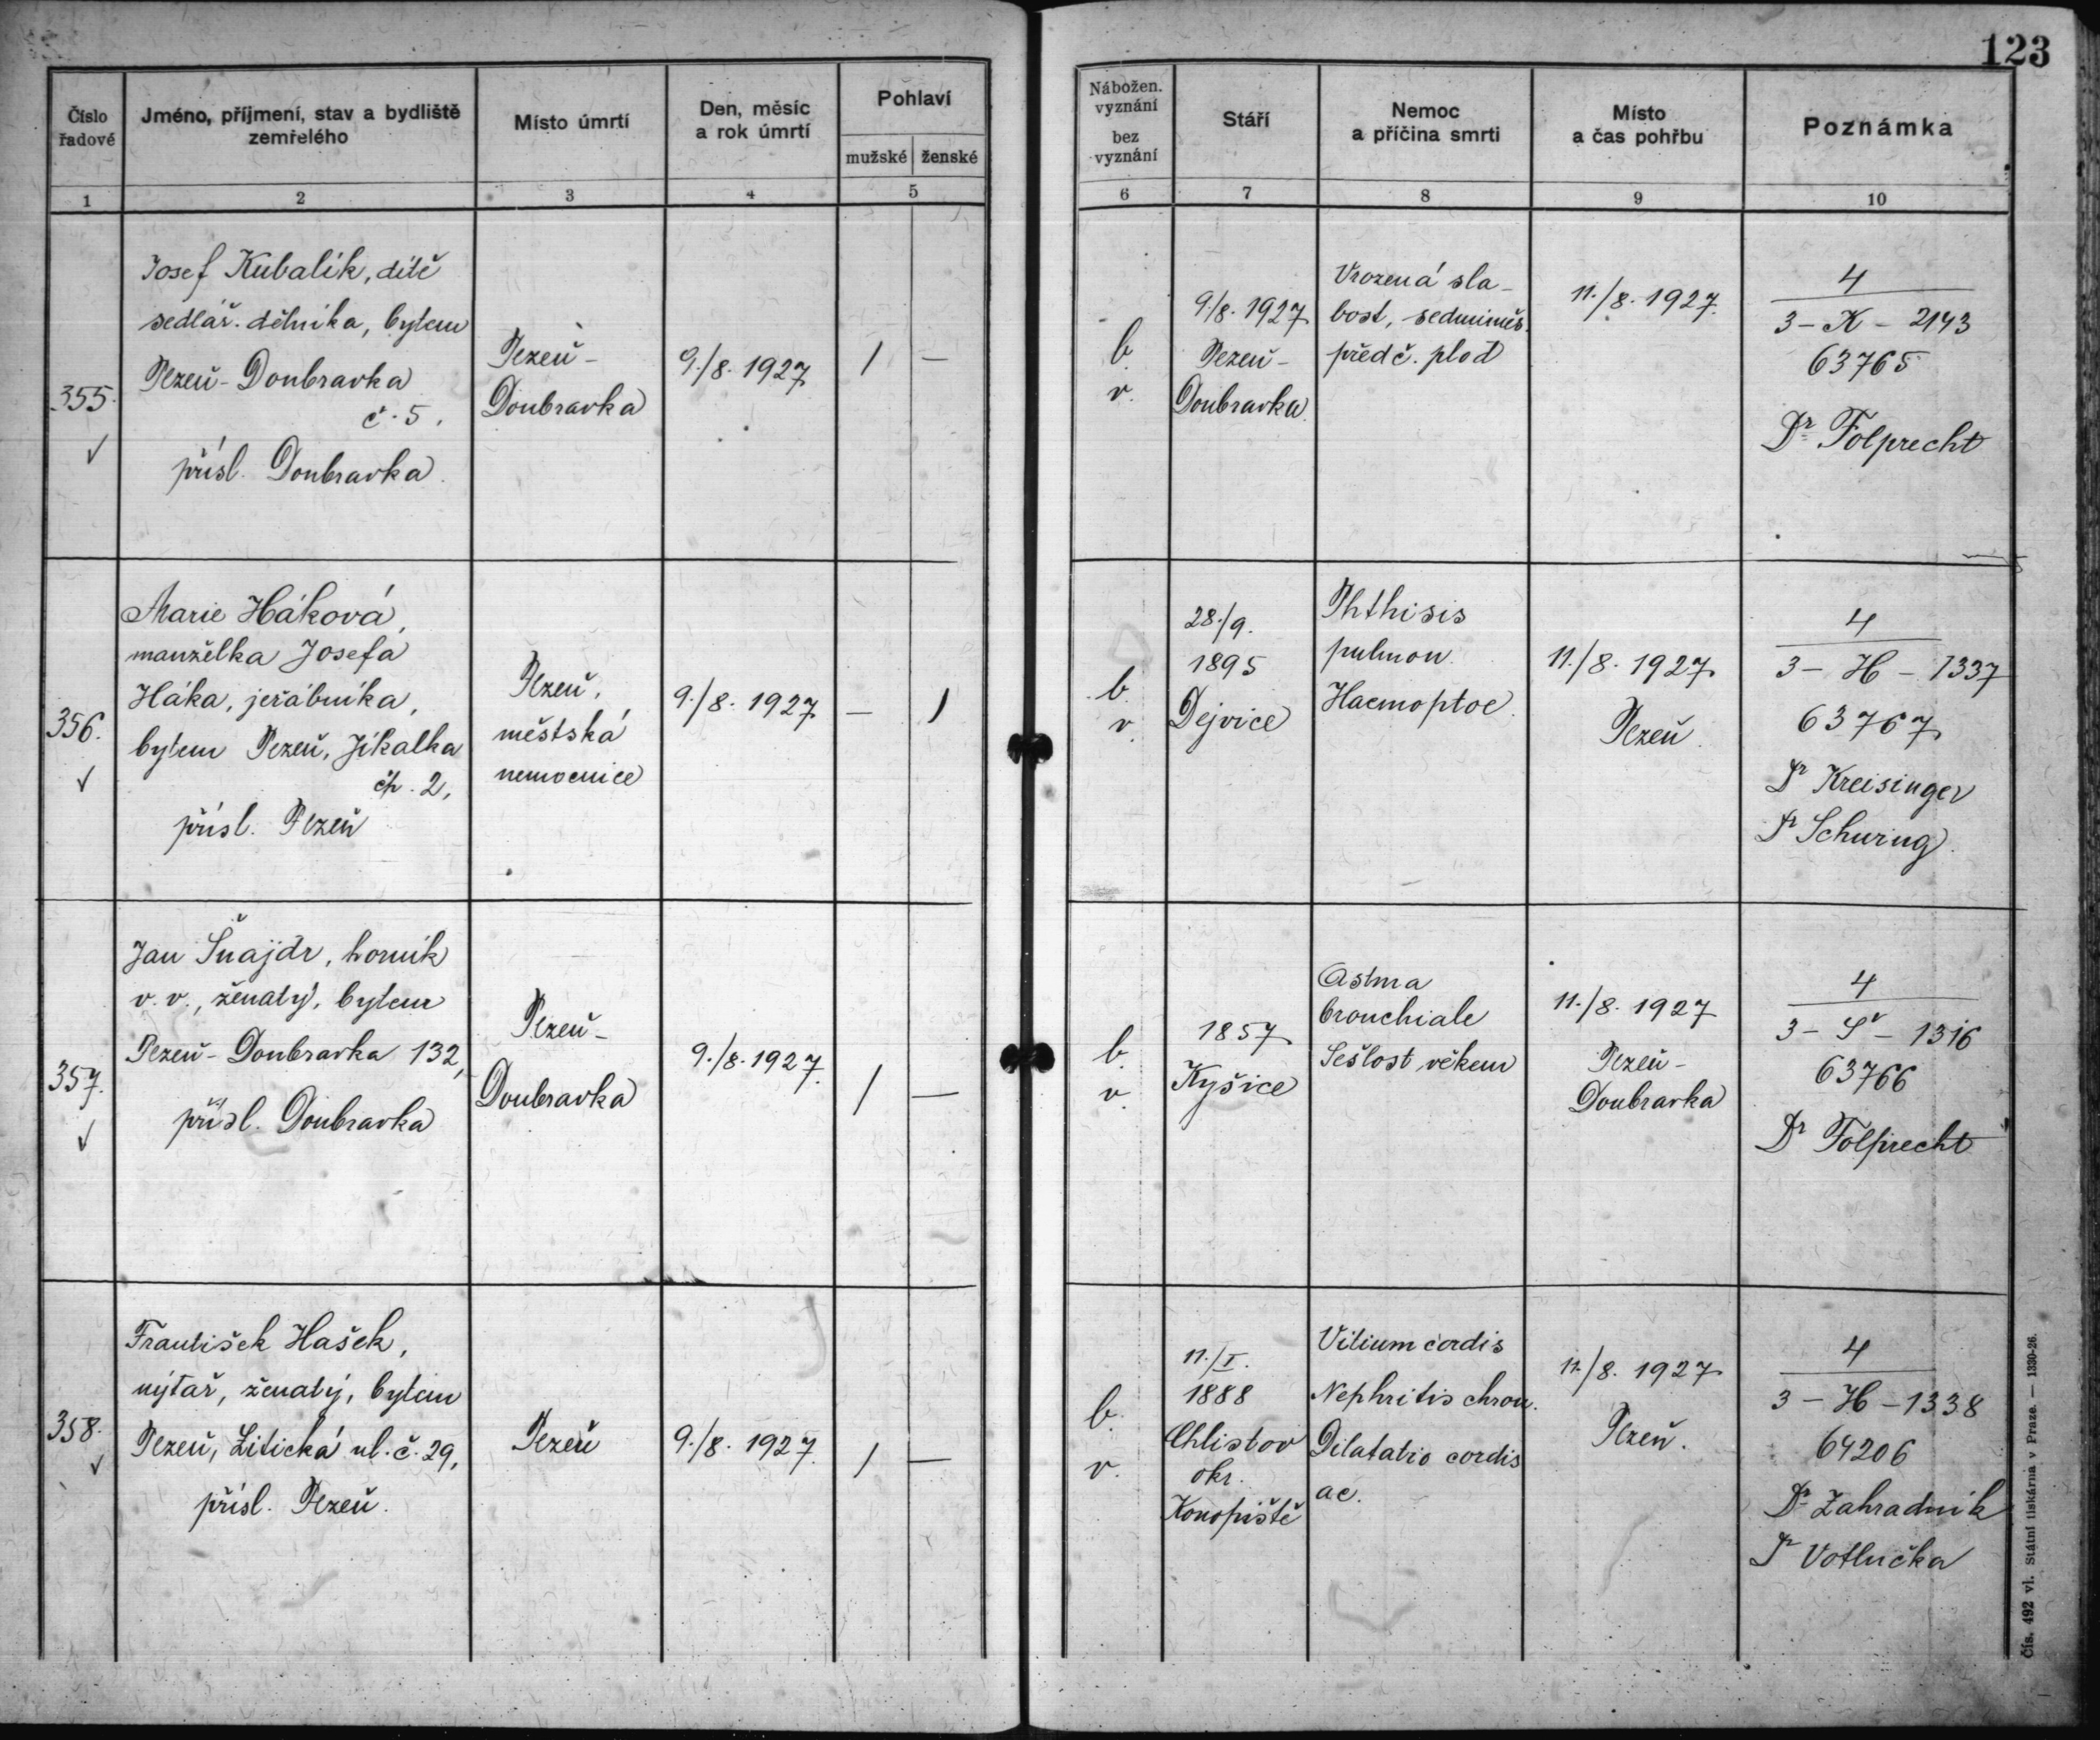 123
Číslo řadové
Jméno, příjmení, stav a bydliště
zemřelého
Místo úmrtí
Den, měsíc
a rok úmrtí
Pohlaví
mužské ženské
Nábožen.
vyznání
bez
vyznání
Stáří
Nemoc
a příčina smrti
Místo
a čas pohřbu
Poznámka
1 2 3 4 5 6 7 8 9 10
355.
Josef Kubalík, dítě
sedlář. dělníka, bytem
Plzeň-Doubravka
č. 5,
přísl. Doubravka.
Plzeň-
Doubravka
9./8. 1927
/ —
b.
v.
9./8. 1927
Plzeň-
Doubravka.
Vrozená sla-
bost, sedmiměs.
předč. plod
11./8. 1927.
4
3-K-2143
63765
Dr Folprecht
356.
Marie Háková,
manželka Josefa
Háka, jeřábníka,
bytem Plzeň, Jikalka
čp. 2,
přísl. Plzeň
Plzeň,
městská
nemocnice
9./8. 1927
— /
b.
v.
28./9.
1895
Dejvice
Phthisis
pulmon.
Haemoptoe.
11./8. 1927
Plzeň.
4
3-H-1337
63767
Dr Kreisinger
Dr Schwing.
357.
Jan Šnajdr, horník
v. v., ženatý, bytem
Plzeň-Doubravka 132,
přísl. Doubravka
Plzeň-
Doubravka
9./8. 1927.
/ —
b.
v.
1857
Kyšice
Astma
bronchiale
Sešlost věkem
11./8. 1927
Plzeň-
Doubravka
4
3-Š-1316
63766
Dr Folprecht
358.
František Hašek,
nýtař, ženatý, bytem
Plzeň, Litická ul. č. 29,
přísl. Plzeň.
Plzeň
9./8. 1927.
/ —
b.
v.
11./I.
1888
Chlistov
okr.
Konopiště
Vitium cordis
Nephritis chron.
Dilatatio cordis
ac.
11./8. 1927
Plzeň.
4
3-H-1338
64206
Dr Zahradník
Dr Votlučka
Čís. 492 vl. Státní tiskárna v Praze. — 1330-26.